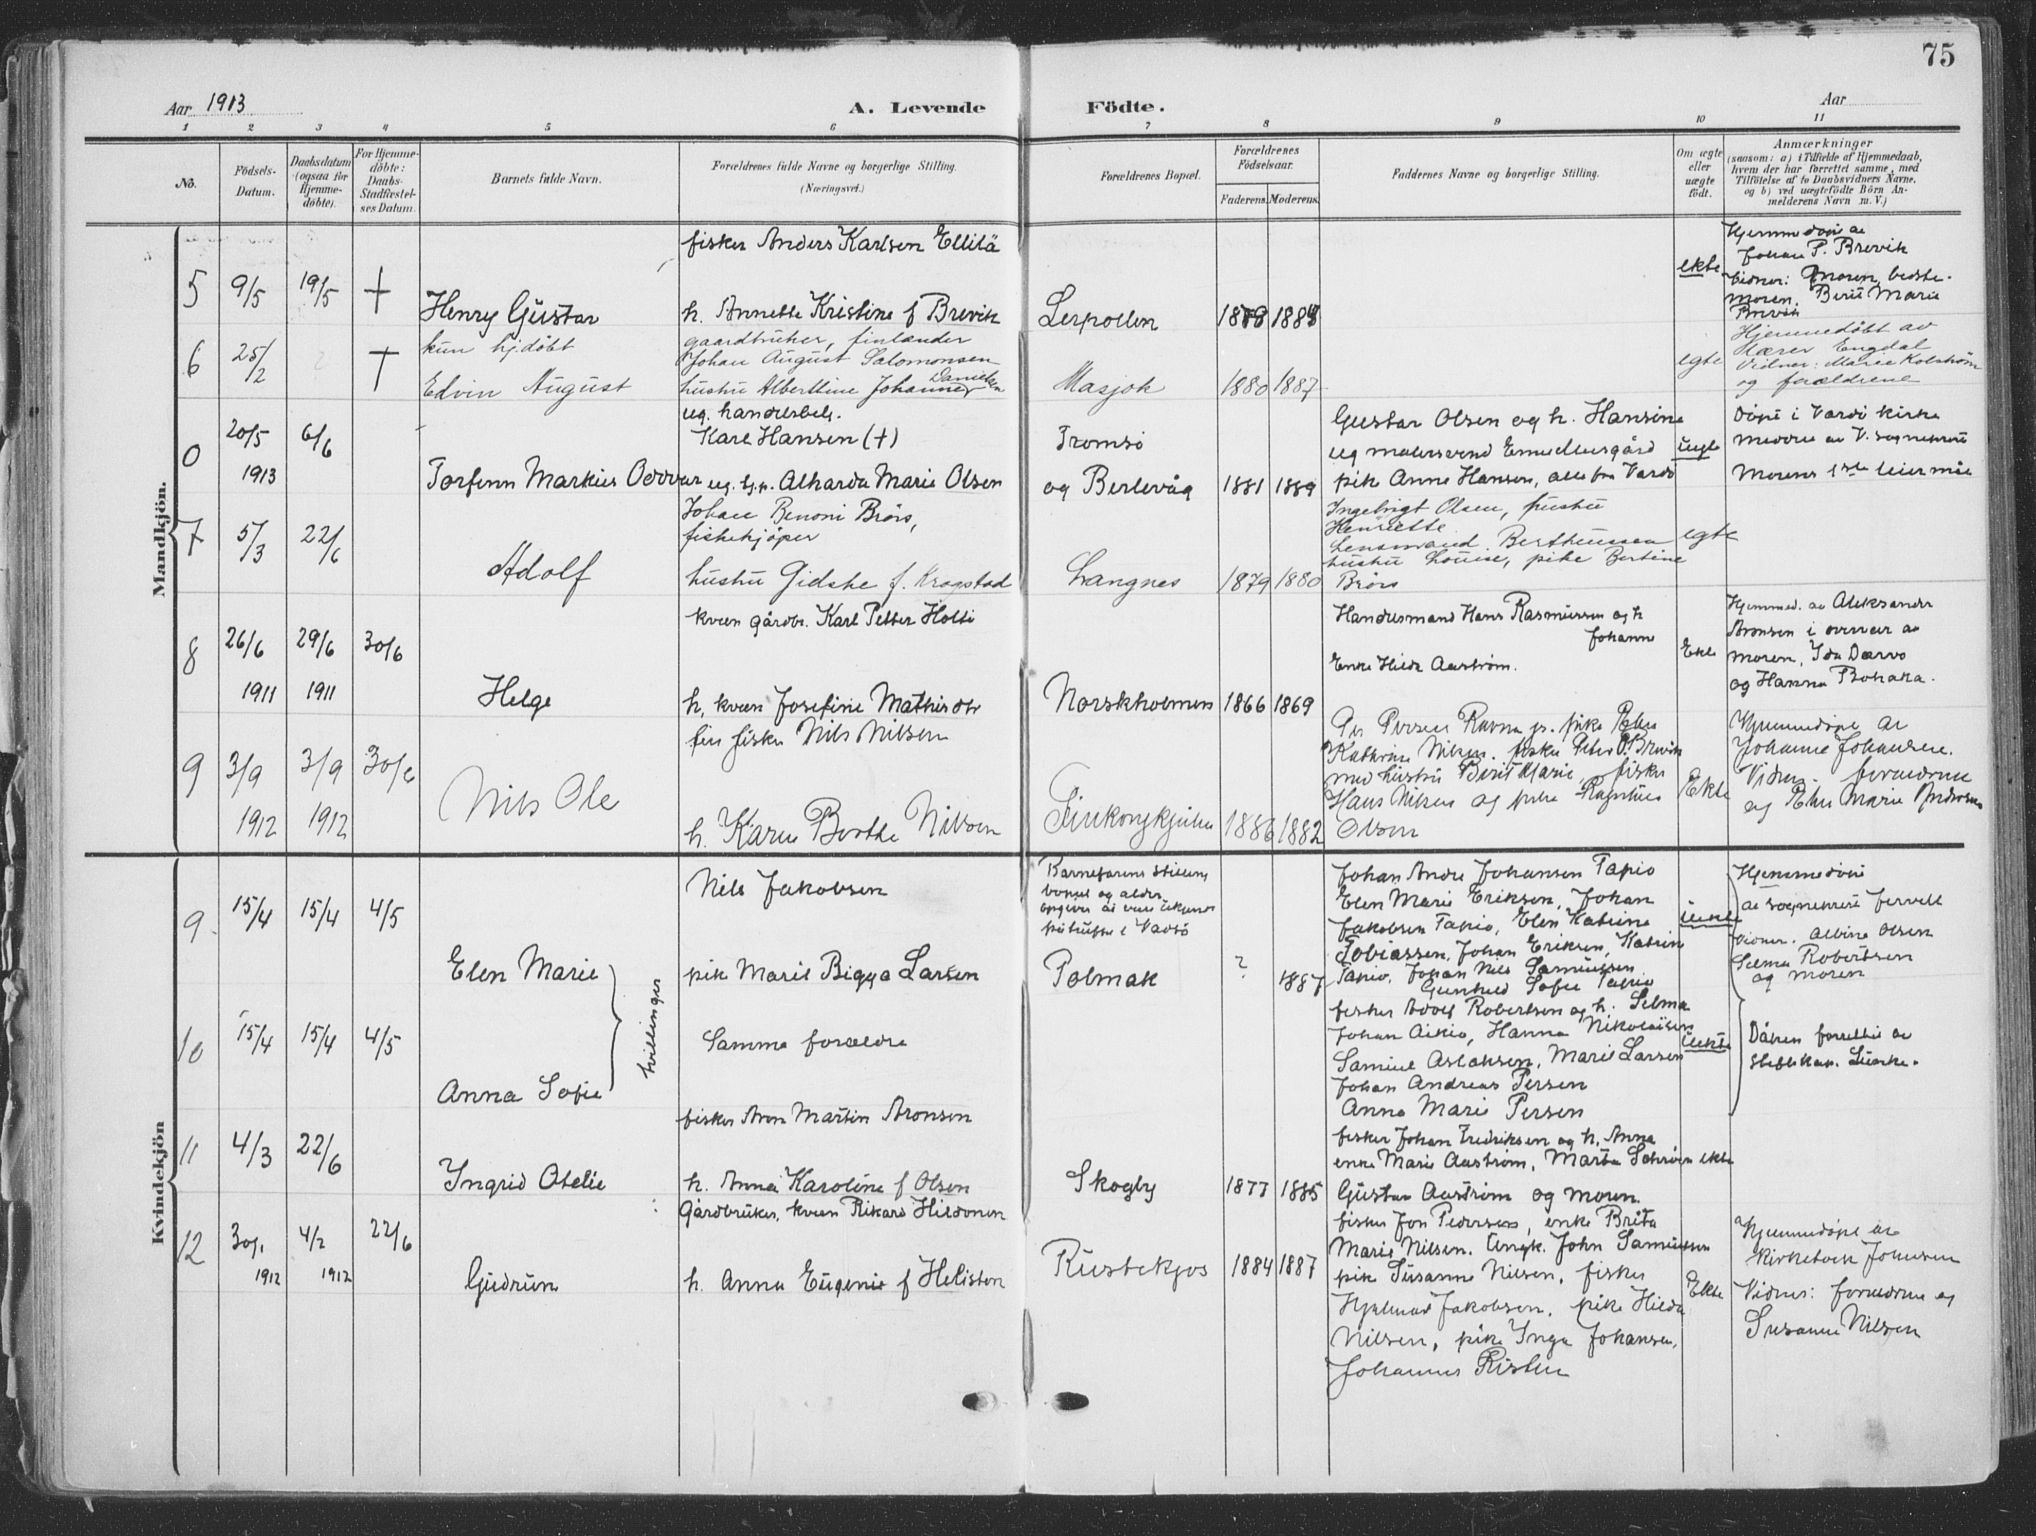 75
Aar 1913
A. Levende
Födte.
Aar
1 2 3 4 5 6 7 8 9 10 11
No.
Födsels-
Datum.
Daabsdatum
(ogsaa for
Hjemme-
döbte).
For Hjemme-
döbte:
Daabs-
Stadfæstel-
ses Datum.
Barnets fulde Navn.
Forældrenes fulde Navne og borgerlige Stilling.
(Næringsvei.)
Forældrenes Bopæl.
Forældrenes
Födselsaar.
Faderens. Moderens.
Faddernes Navne og borgerlige Stilling.
Om ægte
eller
uægte
födt.
Anmærkninger
(saasom: a) i Tilfælde af Hjemmedaab,
hvem der har forrettet samme, med
Tilföielse af to Daabsvidners Navne,
og b) ved uægtefödte Börn An-
melderens Navn m. V.)
Mandkjön.
5 9/5 19/5 +
Henry Gustav
fisker Anders Karlsen Ellilä
h. Annette Kristine f Brevik
Lerpollen
1878 1884
ekte
Hjemmedøpt av
Johan P. Brevik
Vidner: Moren, bedste-
moren, Berit Marie
Brevik
6 25/2 +
kun hjdöbt
Edvin August
gaardbruker, finlænder
Johan August Salomonsen
hustru Albertine Johanne Danielsen
Masjok
1880 1887
egte
Hjemmedöbt av
Kærer Engdal
Vidner: Marie Kolström
og forældrene
0 20/5 6/6
1913
Torfinn Markus Oddvar
ug. handelsbetj.
Karl Hansen (+)
ug. tj.p. Alharda Marie Olsen
Tromsö
og Berlevåg
1881 1889
Gustav Olsen og h. Hansine
ug malersvend
pik Anne Hansen, alle fra Vardö
uegte
Döpt i Vardö kirke
7 5/3 22/6
Adolf
Johan Benoni Brörs,
fiskekjöper
hustru Gidske f. Krogstad
Langnes
1879 1880
Ingebrigt Olsen, hustru
Henriette
Lensmand Bertheussen
hustru Louise, pike Bertine
Brörs
egte
8 26/6 29/6 30/6
1911 1911
Helge
kvæn gårdbr. Karl Petter Holti
h. kvæn Josefine
Norskholmen
1866 1869
Handelsmand Hans Rasmussen og h
Johanne
Enke Hilda Aaström.
Ekte
Hjemmed. av Aleksander
Aronsen i overvær av
moren, Ida Dervo
og Hanna Pohara.
9 3/9 3/9 30/6
1912 1912
Nils Ole
fin fisker Nils Nilsen
h. Karen Berthe Nilsen
Finkongkjeilen
1886 1882
Per Persen Ravna jr. pike
Kathrine Nilsen. fisker Peter P. Brevik
med hustru Berit Marie, fisker
Hans Nilsen og pike
Olsen
Ekte
Hjemmedøpt av
Johanne Johansen.
Vidner: forældrene
og Marie
Kvindekjön
9 15/4 15/4 4/5
Elen Marie
tvillinger
Nils Jakobsen
pik Marit Bigga Larsen
Barnefarens stilling
bopæl og alder
opgives at være ukjendt
Polmak
? 1887
Johan Andr. Johansen Tapio
Elen Marie Eriksen, Johan
Jakobsen Tapio, Elen Katrine
Tobiassen, Johan Eriksen, Katrin
Tapio, Johan Nils Samuelsen
Gunhild Sofie Tapio
uekte
Hjemmedöpt
av sogneprest
Vidner: Albine Olsen
Selma Robertsen
og moren
10 15/4 15/4 4/5
Anna Sofie
Samme forældre
fisker Adolf Robertsen og h. Selma
Johan Aikio, Hanna Nikolaisen
Samuel Aslaksen, Marie Larsen
Johan Andreas Persen
Anna Marie Persen
uekte
Dåpen forrettet av
11 4/3 22/6
Ingrid Otelie
fisker Aron Martin Aronsen
h. Anna Karoline f Olsen
Skogby
1877 1885
fisker Johan Fredriksen og h. Anna
enke Marie Aaström, Marta Schröer
Gustav Aaström og moren.
ekte
12 30/1 4/2 22/6
1912 1912
Gudrun
Gårdbruker, kvæn Rikard Hildonen
h. Anna Eugenie f Helisten
Rustekjos
1884 1887
fisker Jon Pedersen, enke Brita
Marie Nilsen. Ungk. John Samuelsen
pik Susanne Nilsen, fisker
Hjalmar Jakobsen, pike Hilda
Nilsen, pike Inga Johansen,
Johannes Risten
Ekte
Hjemmedøpt av
kirketolk Johnsen
Vidner: forældrene og
Susanne Nilsen